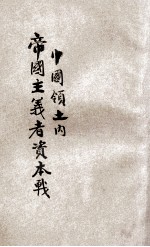 中國領土內
帝國主義者資本戰